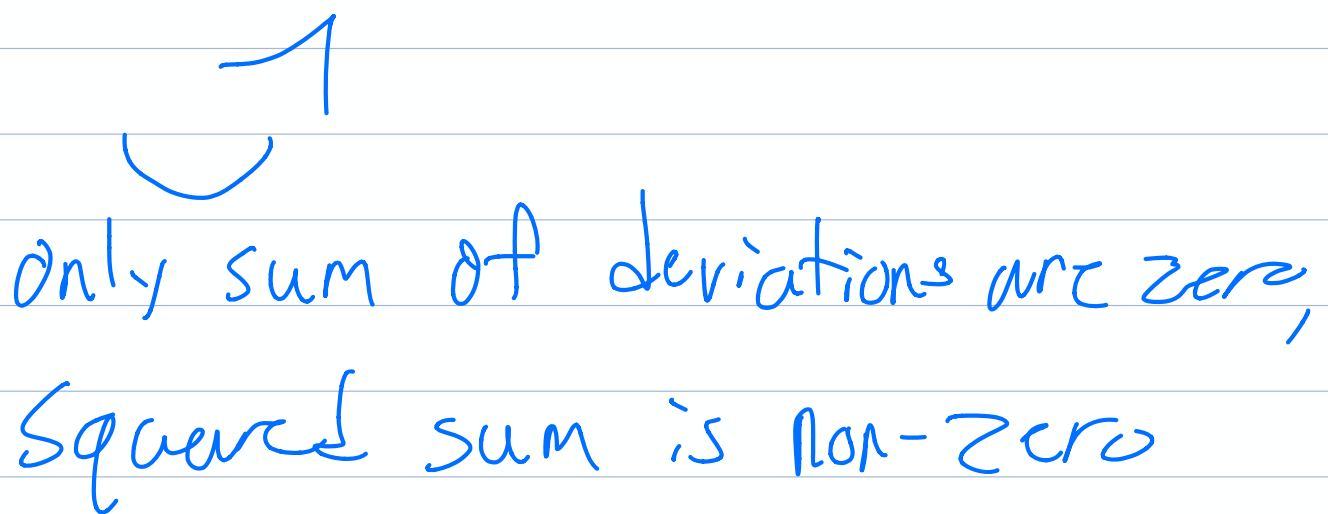 1
only sum of deviations are zero,
Squared sum is non-zero